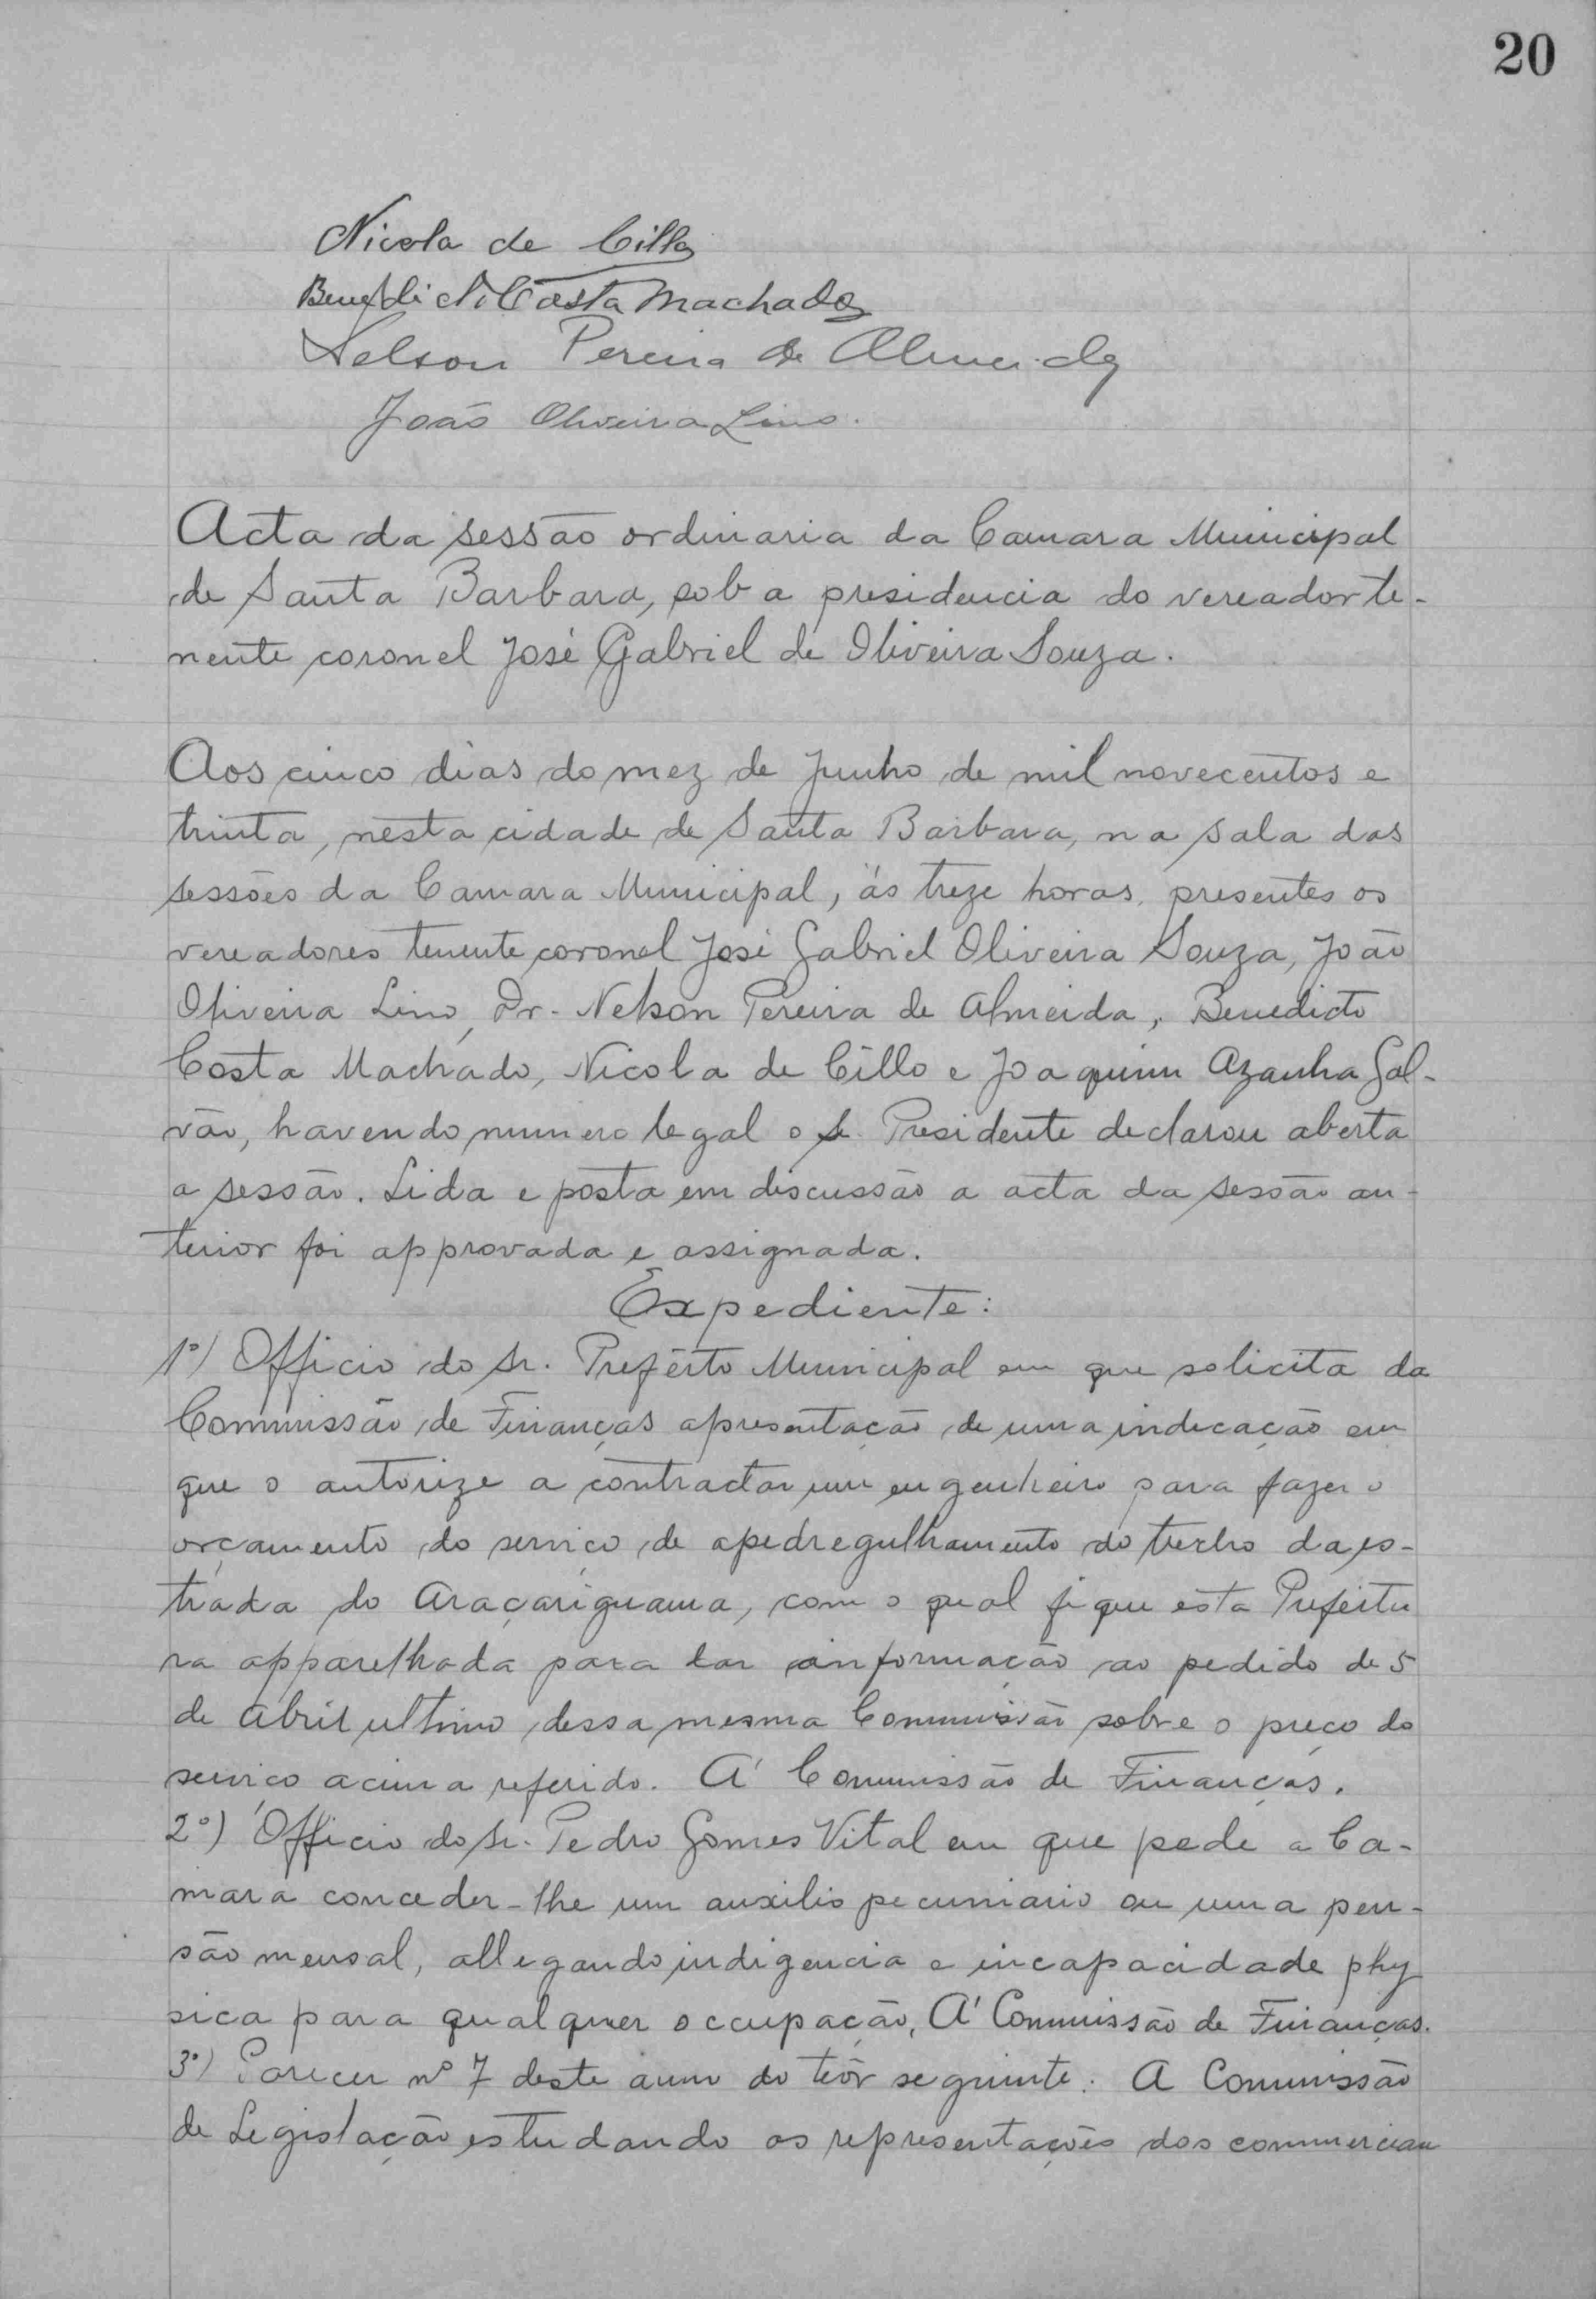 20
Nicola de Cillo
Benedicto Costa Machado
Nelson Pereira de Almeida
João Oliveira Lino.
Acta da sessão ordinaria da Camara Municipal
de Santa Barbara, sob a presidencia do vereador te-
nente coronel José Gabriel de Oliveira Souza.
Aos cinco dias do mez de Junho de mil novecentos e
trinta, nesta cidade de Santa Barbara, na sala das
sessões da Camara Municipal, ás treze horas, presentes os
vereadores tenente coronel José Gabriel Oliveira Souza, João
Oliveira Lino, Dr. Nelson Pereira de Almeida, Benedicto
Costa Machado, Nicola de Cillo e Joaquim Azanha Gal-
vão, havendo numero legal o Sr. Presidente declarou aberta
a sessão. Lida e posta em discussão a acta da sessão an-
terior foi approvada e assignada.
Expediente:
1º) Officio do Sr. Prefeito Municipal em que solicita da
Commissão de Finanças apresentação de uma indicação em
que o autorize a contractar um engenheiro para fazer o
orçamento do serviço de apedregulhamento do trecho da es-
trada do Araçariguama, com o qual fique esta Prefeitu
ra apparelhada para dar informação ao pedido de 5
de Abril ultimo, dessa mesma Commissão sobre o preço do
serviço acima referido. A' Commissão de Finanças.
2º) Officio do Sr. Pedro Gomes Vital em que pede a Ca-
mara conceder-lhe um auxilio pecuniario ou uma pen-
são mensal, allegando indigencia e incapacidade phy
sica para qualquer occupação, A' Commissão de Finanças.
3º) Parecer nº 7 deste anno do teôr seguinte: A Commissão
de Legislação estudando as representações dos commercian